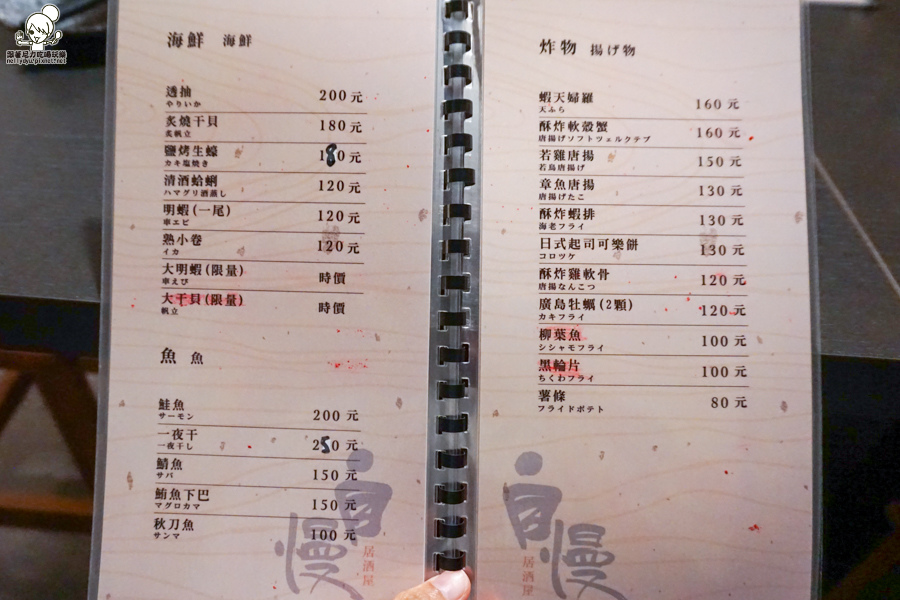 跟著尼力吃喝玩樂
海鮮 海鮮
透抽 200元
やりいか
炙燒干貝 180元
炙帆立
鹽烤生蠔 180元
カキ塩焼き
清酒蛤蜊 120元
ハマグリ酒蒸し
明蝦(一尾) 120元
車エビ
熟小卷 120元
イカ
大明蝦(限量) 時價
車えび
大干貝(限量) 時價
帆立
魚 魚
鮭魚 200元
サーモン
一夜干 250元
一夜干し
鯖魚 150元
サバ
鮪魚下巴 150元
マグロカマ
秋刀魚 100元
サンマ
自慢
居酒屋
炸物 揚げ物
蝦天婦羅 160元
天ふら
酥炸軟殼蟹 160元
唐揚げソフトツェルクテブ
若雞唐揚 150元
若鳥唐揚げ
章魚唐揚 130元
唐揚げたこ
酥炸蝦排 130元
海老フライ
日式起司可樂餅 130元
コロツケ
酥炸雞軟骨 120元
唐揚なんこつ
廣島牡蠣(2顆) 120元
カキフライ
柳葉魚 100元
シシャモフライ
黑輪片 100元
ちくわフライ
薯條 80元
フライドポテト
自慢
居酒屋